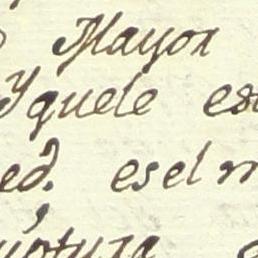 Mayor
Yquele es
ed. es el m